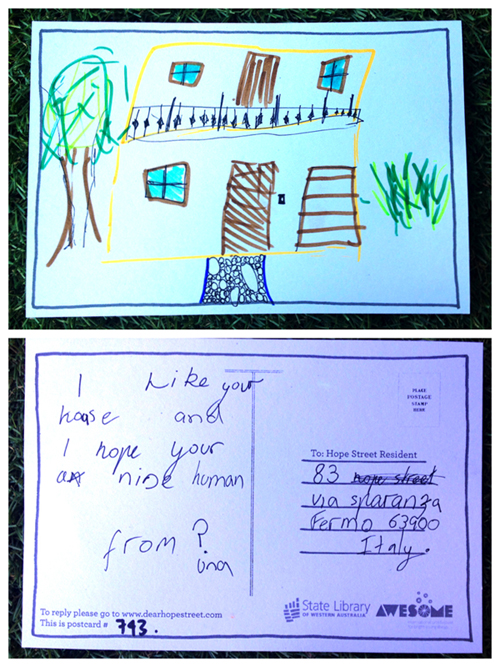 I Like your
house and
I hope your
a nice human
from ?
una
PLACE
POSTAGE
STAMP
HERE
To: Hope Street Resident
83 hope street
via sparanza
Fermo 63900
Italy.
To reply please go to www.dearhopestreet.com
This is postcard # 793.
State Library
OF WESTERN AUSTRALIA
AWESOME